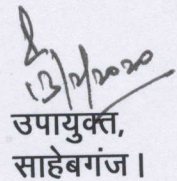 13/2/2020
उपायुक्त,
साहेबगंज।